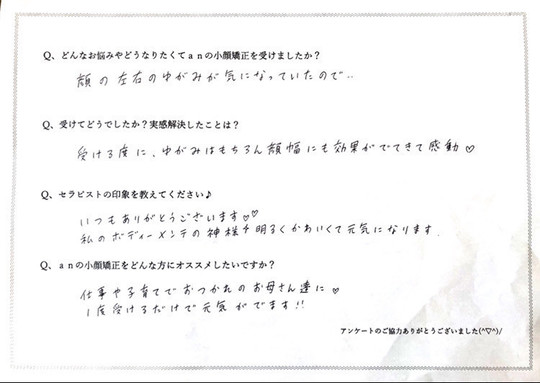 Q、どんなお悩みやどうなりたくてanの小顔矯正を受けましたか？
顔の左右のゆがみが気になっていたので..
Q、受けてどうでしたか？実感解決したことは？
受ける度に、ゆがみはもちろん顔幅にも効果がでてきて感動♡
Q、セラピストの印象を教えてください♪
いつもありがとうございます♡♡
私のボディーメンテの神様 明るくかあいくて元気になります.
Q、anの小顔矯正をどんな方にオススメしたいですか？
仕事や子育てでおつかれのお母さん達に♡
1度受けるだけで元気がでます!!
アンケートのご協力ありがとうございました(^▽^)/